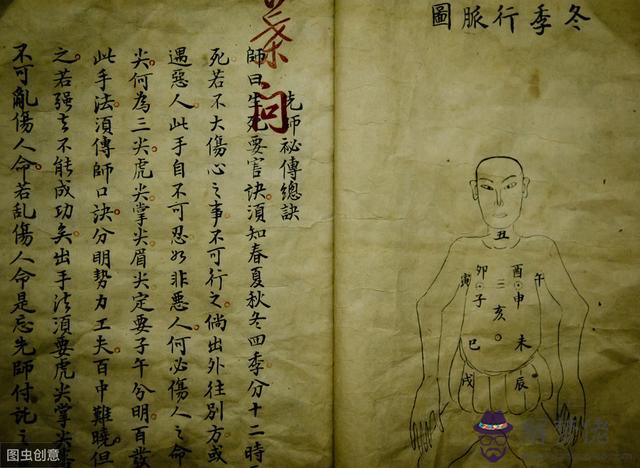 冬季行脈圖
丑
午
酉
申
卯
子
寅
三
亥
未
巳
辰
戌
葉問
先師祕傳總訣
師曰生死要害訣須知春夏秋冬四季分十二時
死若不大傷心之事不可行之倘出外往別方或
遇惡人此手自不可忍如非惡人何必傷人之命
尖何為三尖虎尖掌尖眉尖定要子午分明百發
此手法須傳師口訣分明勢力工夫百中難曉但
之若强不能成功矣出手法須要虎尖掌尖
不可亂傷人命若乱傷人命是忘先師付託之
图虫创意